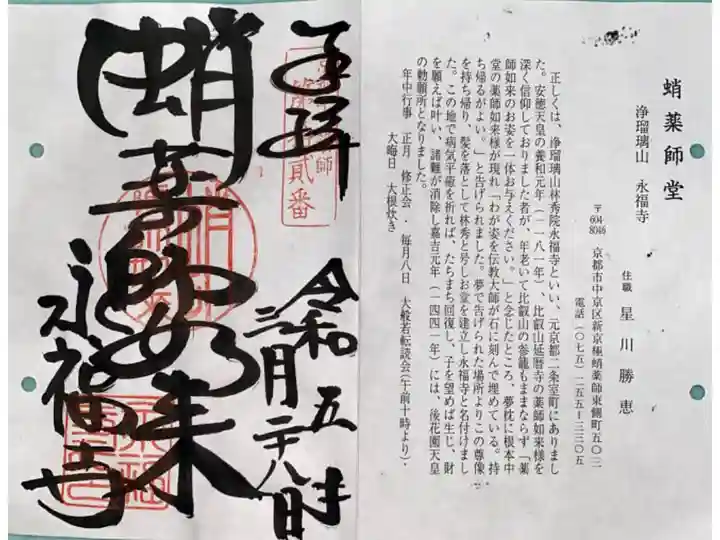 蛸薬師堂
浄瑠璃山 永福寺
住職 星川勝恵
〒604-8046 京都市中京区新京極蛸薬師東側町五〇二
電話(〇七五)二五五ー三三〇五
正しくは、浄瑠璃山林秀院永福寺といい、元京都二条室町にありまし
た。安徳天皇の養和元年(一一八一年)、比叡山延暦寺の薬師如来様を
深く信仰しておりました者が、年老いて比叡山の参籠もままならず「薬
師如来のお姿を一体お与えください。」と念じたところ、夢枕に根本中
堂の薬師如来様が現れ「わが姿を伝教大師が石に刻んで埋めている。持
ち帰るがよい。」と告げられました。夢で告げられた場所よりこの尊像
を持ち帰り、髪を落として林秀と号しお堂を建立し永福寺と名付けまし
た。この地で病気平癒を祈れば、たちまち回復し、子を望めば生じ、財
を願えば叶い、諸難が消除し嘉吉元年(一四四一年)には、後花園天皇
の勅願所となりました。
年中行事 正月 修正会・毎月八日 大般若転読会(午前十時より)・
大晦日 大根炊き
奉拝
貳番
令和五年
三月二十八日
蛸薬師如来
永福寺